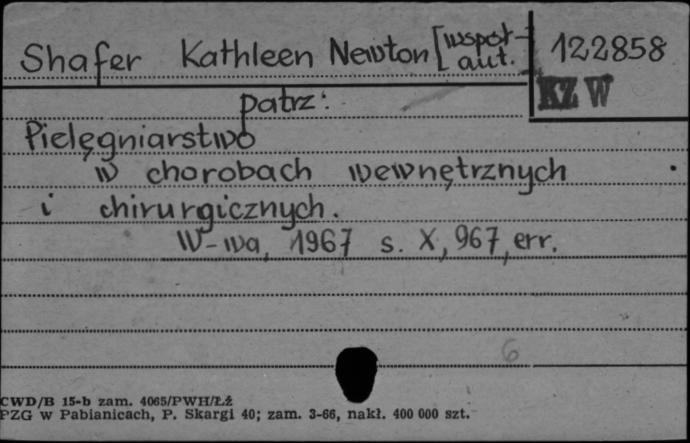 Shafer Kathleen Newton [współ-
aut.
122858
KZ W
patrz:
Pielęgniarstwo
w chorobach wewnętrznych
i chirurgicznych.
W-wa, 1967 s. X, 967, err.
6
CWD/B 15-b zam. 4065/PWH/Łż
PZG w Pabianicach, P. Skargi 40; zam. 3-66, nakł. 400 000 szt.